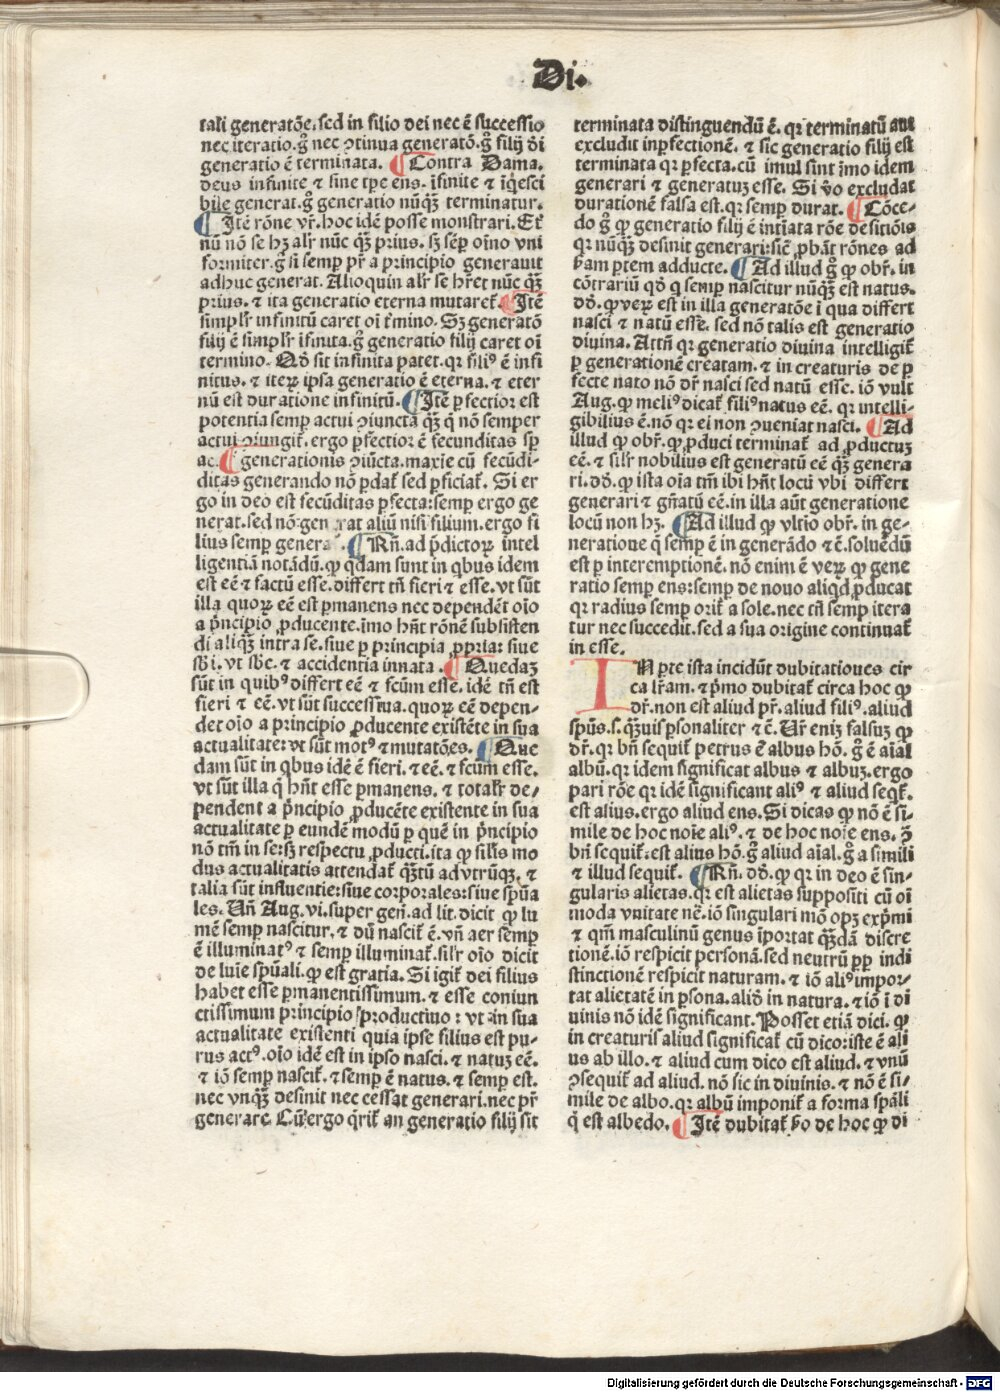 Di.
tali generatõe. sed in filio dei nec ẽ successio
nec iteratio. gͦ nec ꝯtinua generatõ. gͦ filij di
generatio ẽ terminata. ¶ Contra Dama.
deus infinite ⁊ sine tꝑe ens. ĩfinite ⁊ ĩq̃esci
bile generat. gͦ generatio nũqꝫ terminatur.
¶ Itẽ rõne vr̃. hoc idẽ posse monstrari. Et̾
nũ nõ se hꝫ alr̃ nũc qꝫ prius. sꝫ sẽꝑ oĩno vni
formiter. gͦ si semꝑ pr̃ a principio generauit
adhuc generat. Alioquin alr̃ se hr̃et nũc qꝫ
prius. ⁊ ita generatio eterna mutaret̾. ¶ Itẽ
simplr̃ infinitũ caret oĩ t̾mino. Sꝫ generatõ
filij ẽ simplr̃ ĩfinita. gͦ generatio filij caret oĩ
termino. Qđ sit infinita patet. qꝛ filiꝰ ẽ infi
nitus. ⁊ iteꝝ ipsa generatio ẽ eterna. ⁊ eter
nũ est duratione infinitũ. ¶ Itẽ ꝑfectior est
potentia semꝑ actui ꝯiuncta qꝫ q̃ nõ semper
actui ꝯiungit̾. ergo ꝑfectior ẽ fecunditas sꝑ
ac. ¶ generationis ꝯiũcta. maxĩe cũ fecũdi-
ditas generando nõ ꝑdat̾ sed ꝑficiat̾. Si er
go in deo est fecũditas ꝑfecta: semꝑ ergo ge
nerat. sed nõ gen rat aliũ nisi filium. ergo fi
lius semꝑ genera . ¶ Rñ. ad p̃dictoꝝ intel
ligentiã notãdũ. ꝙ q̃dam sunt in qͥbus idem
est eẽ ⁊ factũ esse. differt tñ fieri ⁊ esse. vt sũt
illa quoꝝ eẽ est ꝑmanens nec dependẽt oĩo
a pͥncipio ꝓducente. ĩmo hñt rõnẽ subsisten
di aliqͣꝫ intra se. siue ꝑ principia ꝓpria: siue
sb̾i. vt sbẽ. ⁊ accidentia innata. ¶ Quedaꝫ
sũt in quibꝰ differt eẽ ⁊ fcũm esse. idẽ tñ est
fieri ⁊ eẽ. vt sũt successiua. quoꝝ eẽ depen-
det oĩo a principio ꝓducente existẽte in sua
actualitate: vt sũt motꝰ ⁊ mutatões. ¶ Que
dam sũt in qͥbus idẽ ẽ fieri. ⁊ eẽ. ⁊ fcũm esse.
vt sũt illa q̃ hñt esse ꝑmanens. ⁊ totalr̃ de-
pendent a pͥncipio ꝓducẽte existente in sua
actualitate ꝑ eundẽ modũ ꝑ quẽ in pͥncipio
nõ tm̃ in se: sꝫ respectu ꝓducti. ita ꝙ silĩs mo
dus actualitatis attendat̾ qͣꝫtũ ad vtrũqꝫ. ⁊
talia sũt influentie: siue corporales: siue spũa
les. Uñ Aug. vi. super gen̄. ad lit. dicit ꝙ lu
mẽ semꝑ nascitur. ⁊ dũ nascit̾ ẽ. vñ aer semꝑ
ẽ illuminatꝰ ⁊ semꝑ illuminat̾. silr̃ oĩo dicit
de luĩe spũali. ꝙ est gratia. Si igit̾ dei filius
habet esse ꝑmanentissimum. ⁊ esse coniun
ctissimum principio productiuo: vt in sua
actualitate existenti quia ipse filius est pu-
rus actꝰ. oĩo idẽ est in ipso nasci. ⁊ natuꝫ eẽ.
⁊ iõ semꝑ nascit̾. ⁊ semꝑ ẽ natus. ⁊ semꝑ est.
nec vnqͣꝫ desinit nec cessat generari. nec pr̃
generare. Cũ ergo q̃rit̾ an generatio filij sit
terminata distinguendũ ẽ. qꝛ terminatũ aut
excludit inꝑfectionẽ. ⁊ sic generatio filij est
terminata qꝛ ꝑfecta. cũ imul sint ĩmo idem
generari ⁊ generatuꝫ esse. Si vo excludat
durationẽ falsa est. qꝛ semꝑ durat. ¶ Cõce-
do gͦ ꝙ generatio filij ẽ intĩata rõe desitiõis
qꝛ nũqꝫ desinit generari: sicͣ ꝓbãt rõnes ad
hͣam ꝑtem adducte. ¶ Ad illud gͦ ꝙ obr̃. in
cõtrariũ qđ q semꝑ nascitur nũqꝫ est natus.
dđ. ꝙ veꝝ est in illa generatõe ĩ qua differt
nasci ⁊ natũ esse. sed nõ talis est generatio
diuina. Attñ qꝛ generatio diuina intelligit̾
ꝑ generationẽ creatam. ⁊ in creaturis de ꝑ
fecte nato nõ dr̃ nasci sed natũ esse. iõ vult
Aug. ꝙ meliꝰ dicat̾ filiꝰ natus eẽ. qꝛ intelli-
gibilius ẽ. nõ qꝛ ei non ꝯueniat nasci. ¶ Ad
illud ꝙ obr̃. ꝙ ꝓduci terminat̾ ad ꝓductuꝫ
eẽ. ⁊ silr̃ nobilius est generatũ eẽ qꝫ genera
ri. dđ. ꝙ ista oĩa tm̃ ibi hñt locũ vbi differt
generari ⁊ gñatũ eẽ. in illa aũt generatione
locũ non hꝫ. ¶ Ad illud ꝙ vltio obr̃. in ge-
neratione q̃ semꝑ ẽ in generãdo ⁊c̃. soluẽdũ
est ꝑ interemptionẽ. nõ enim ẽ veꝝ ꝙ gene
ratio semꝑ ens: semꝑ de nouo aliqđ ꝓducat
qꝛ radius semꝑ orit̾ a sole. nec tñ semꝑ itera
tur nec succedit. sed a sua origine continuat̾
in esse.
IN ꝑte ista incidũt dubitationes cir
ca lr̃am. ⁊ pͥmo dubitat̾ circa hoc ꝙ
dr̃. non est aliud pr̃. aliud filiꝰ. aliud
spũs. s. qͣꝫuis ꝑsonaliter ⁊c̃. Ur̃ enĩꝫ falsuꝫ ꝙ
dr̃. qꝛ bñ sequit̾ petrus ẽ albus hõ. gͦ ẽ aĩal
albũ. qꝛ idem significat albus ⁊ albuꝫ. ergo
pari rõe qꝛ idẽ significant aliꝰ ⁊ aliud seqͥt̾.
est alius. ergo aliud ens. Si dicas ꝙ nõ ẽ si-
mile de hoc noĩe aliꝰ. ⁊ de hoc noĩe ens. ꝯͣ
bñ sequit̾. est alius hõ. gͦ aliud aĩal. gͦ a simili
⁊ illud sequit̾. ¶ Rñ. dđ. ꝙ qꝛ in deo ẽ sin-
gularis alietas. qꝛ est alietas suppositi cũ oĩ
moda vnitate nẽ. iõ singulari mõ opꝫ exp̃mi
⁊ qm̃ masculinũ genus ĩportat qͣꝫdã discre
tionẽ. iõ respicit ꝑsonã. sed neutrũ ꝓꝑ indi
stinctionẽ respicit naturam. ⁊ iõ aliꝰ impor-
tat alietatẽ in ꝑsona. aliđ in natura. ⁊ iõ ĩ di
uinis nõ idẽ significant. Posset etiã dici. ꝙ
in creaturis aliud significat̾ cũ dico: iste ẽ ali
us ab illo. ⁊ aliud cum dico est aliud. ⁊ vnũ
ꝯsequit̾ ad aliud. nõ sic in diuinis. ⁊ nõ ẽ si-
mile de albo. qꝛ albũ imponit̾ a forma spãli
q̃ est albedo. ¶ Itẽ dubitat̾ hͦ de hoc ꝙ di
Digitalisierung gefördert durch die Deutsche Forschungsgemeinschaft - DFG